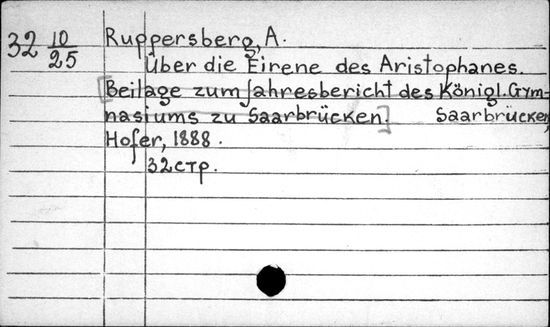 32 10/25
Ruppersberg, A.
Über die Eirene des Aristophanes.
[Beilage zum Jahresbericht des Königl. Gym-
nasiums zu Saarbrücken]. Saarbrücken,
Hofer, 1888.
32 стр.